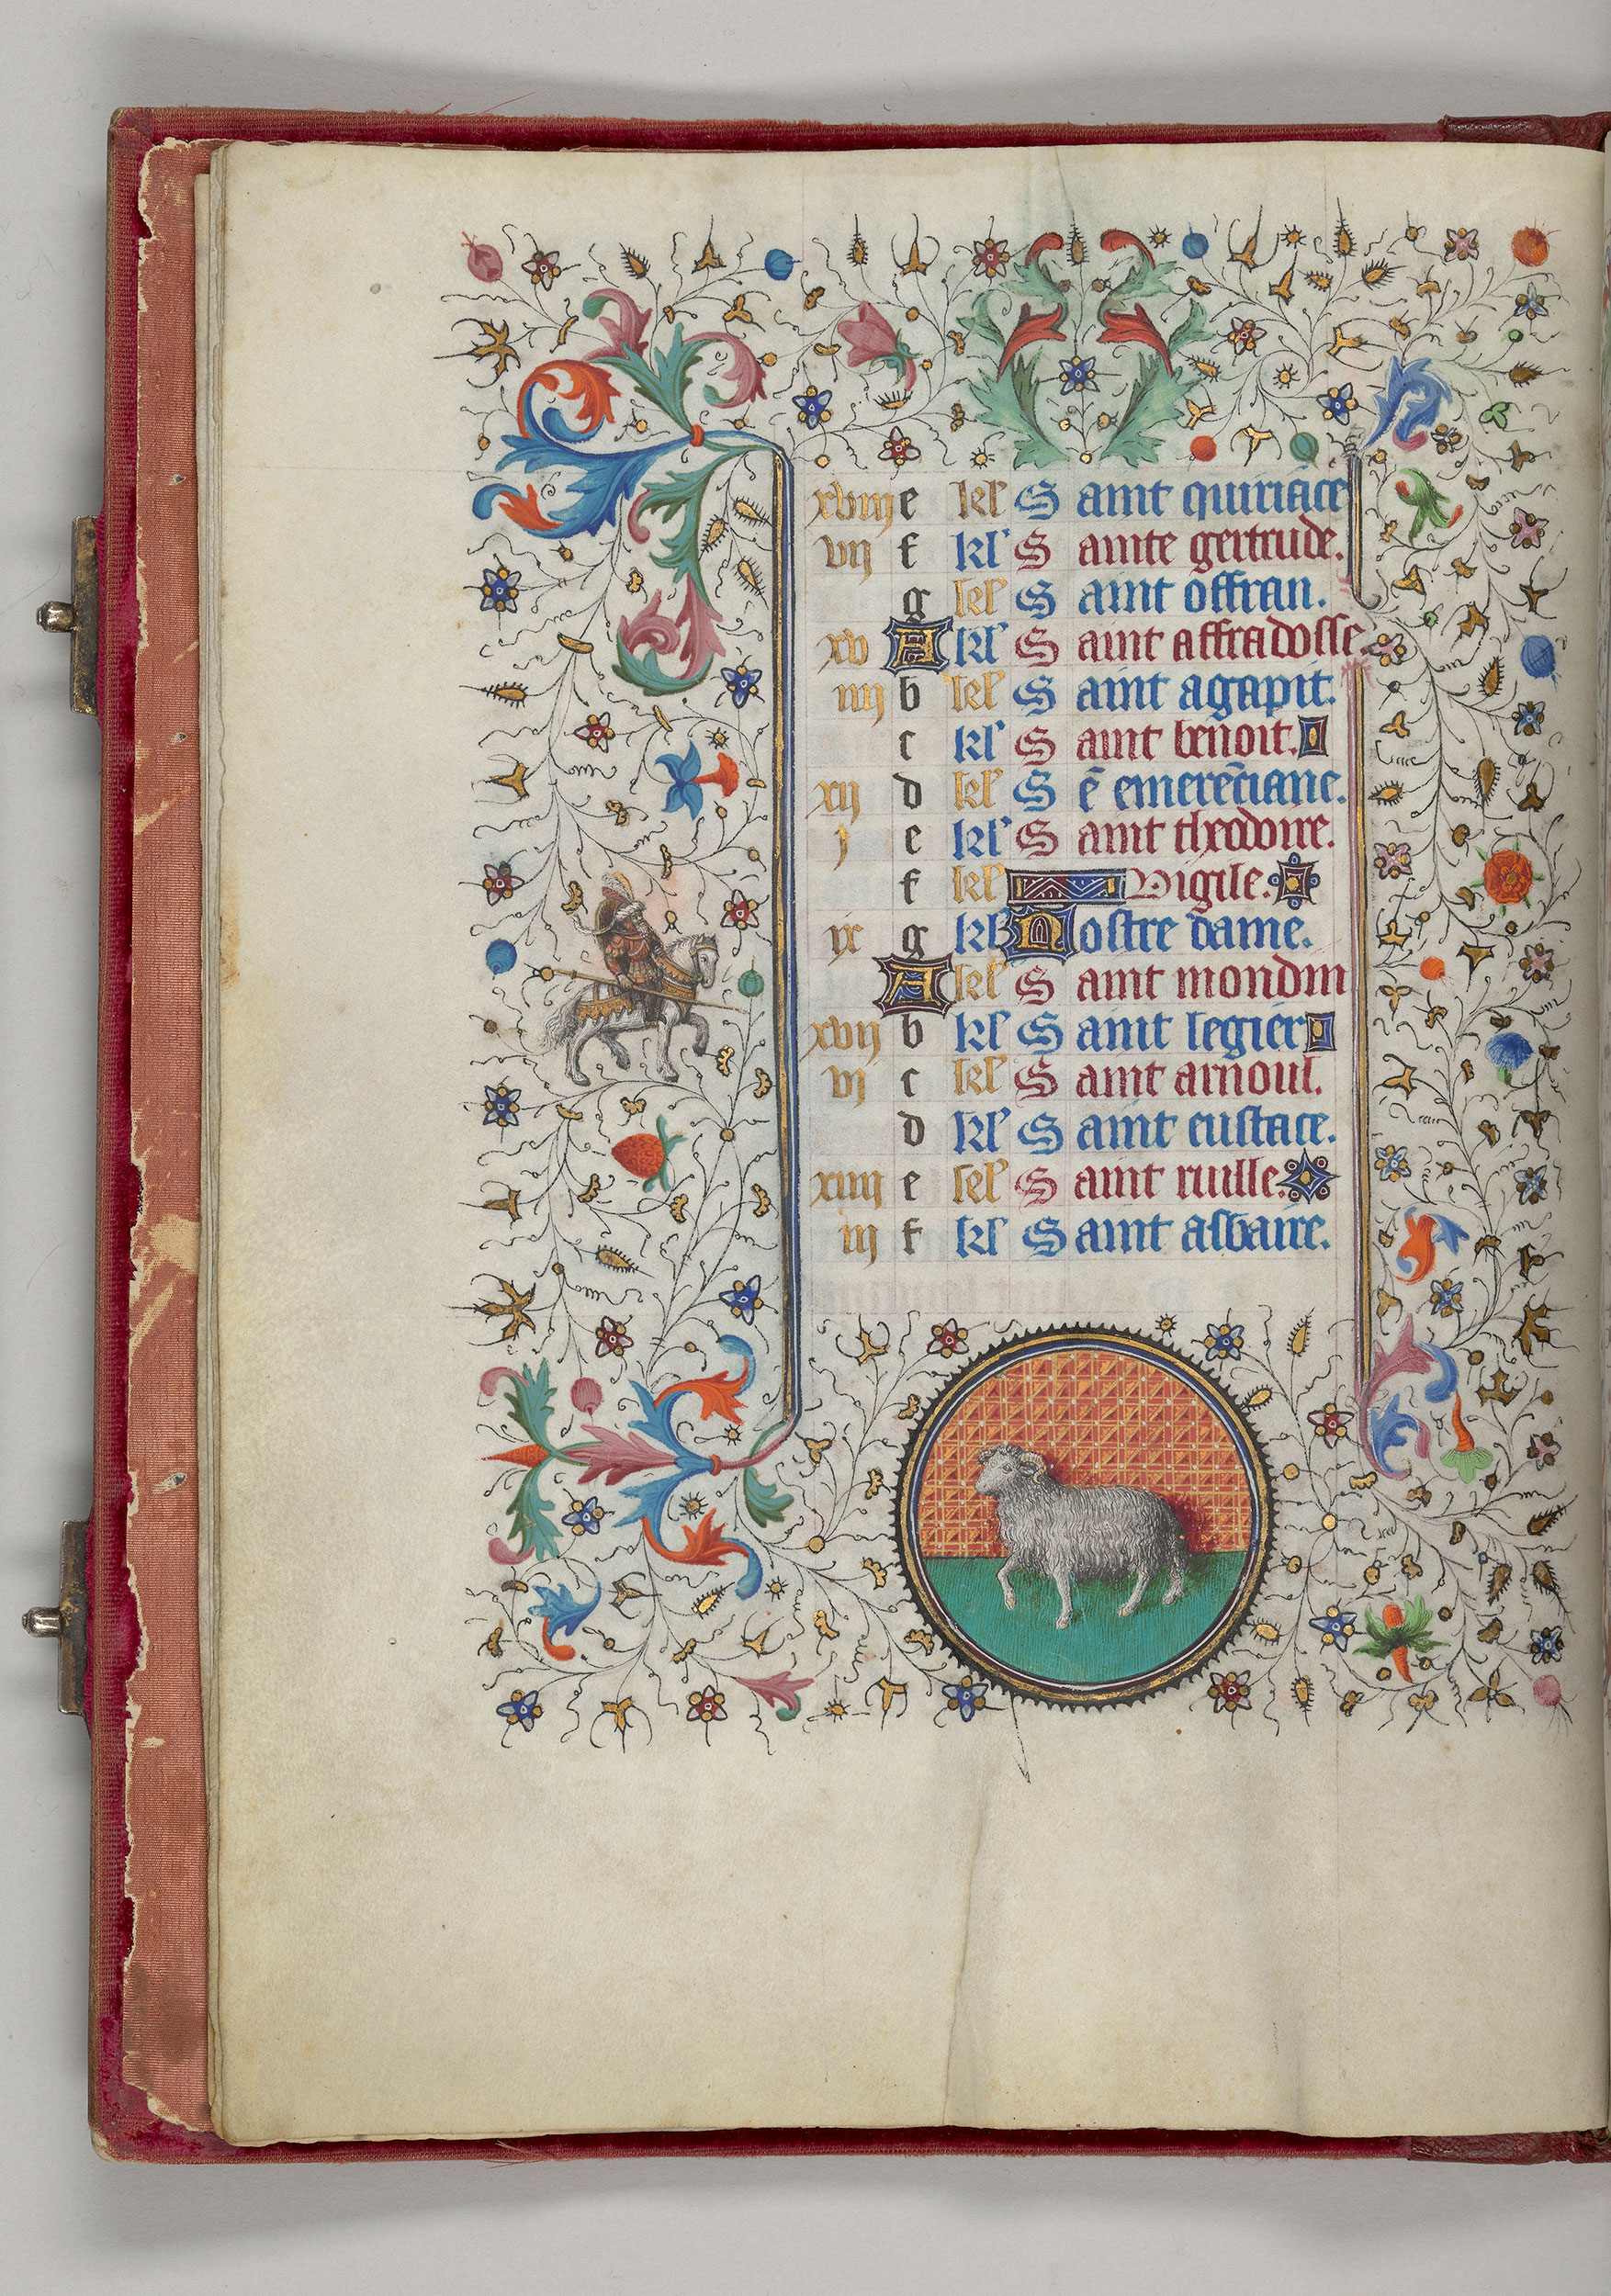 xviij e kl' Saint quiriace
vij f kl' Sainte gertrude.
g kl' Saint offran.
xv A kl' Saint affradosse
iiij b kl' Saint agapit.
c kl' Saint benoit.
xij d kl' Sē emerēciane.
j e kl' Saint theodoire.
f kl' Vigile.
ix g kl' Nostre dame.
A kl' Saint mondin
xvij b kl' Saint legier
vj c kl' Saint arnoul.
d kl' Saint eustace.
xiiij e kl' Saint ruille.
iij f kl' Saint albaire.